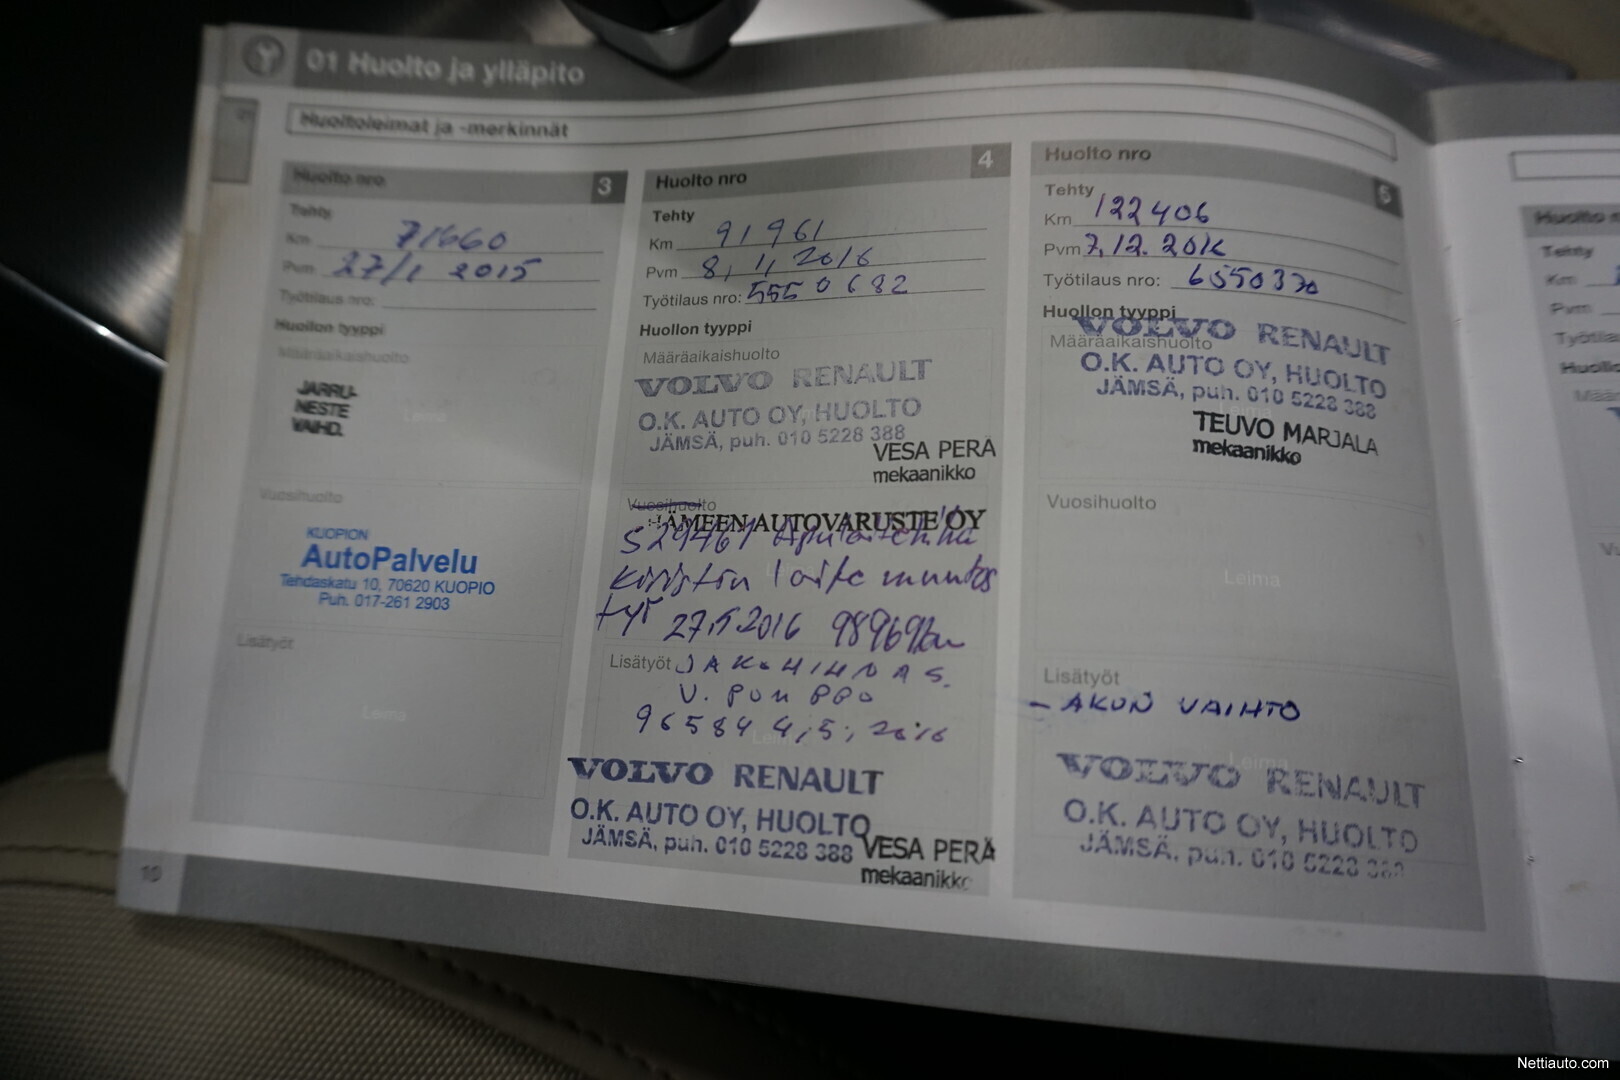 01 Huolto ja ylläpito
Huoltoleimat ja -merkinnät
Huolto nro 3
Tehty
Km 71660
Pvm 27/1 2015
Työtilaus nro:
Huollon tyyppi
Määräaikaishuolto
JARRU-
NESTE
VAIHD.
Leima
Vuosihuolto
KUOPION
AutoPalvelu
Tehdaskatu 10, 70620 KUOPIO
Puh. 017-261 2903
Lisätyöt
Leima
10
Huolto nro 4
Tehty
Km 91961
Pvm 8,1,2016
Työtilaus nro: 5550682
Huollon tyyppi
Määräaikaishuolto
VOLVO RENAULT
O.K. AUTO OY, HUOLTO
JÄMSÄ, puh. 010 5228 388
VESA PERÄ
mekaanikko
Vuosihuolto
HÄMEEN AUTOVARUSTE OY
S29461 Apulaitehihna
Kiristin laite muutos
työ 27.5.2016 98969km
Lisätyöt JAKOHIHNA S.
V. PUMPPU
96584 4,5,2016
VOLVO RENAULT
O.K. AUTO OY, HUOLTO
JÄMSÄ, puh. 010 5228 388
VESA PERÄ
mekaanikko
Huolto nro 5
Tehty
Km 122406
Pvm 7,12.2016
Työtilaus nro: 6550370
Huollon tyyppi
Määräaikaishuolto
VOLVO RENAULT
O.K. AUTO OY, HUOLTO
JÄMSÄ, puh. 010 5228 388
Leima
TEUVO MARJALA
mekaanikko
Vuosihuolto
Leima
Lisätyöt
- AKUN VAIHTO
Leima
VOLVO RENAULT
O.K. AUTO OY, HUOLTO
JÄMSÄ, puh. 010 5228 388
Huolto
Tehty
Km
Pvm
Nettiauto.com